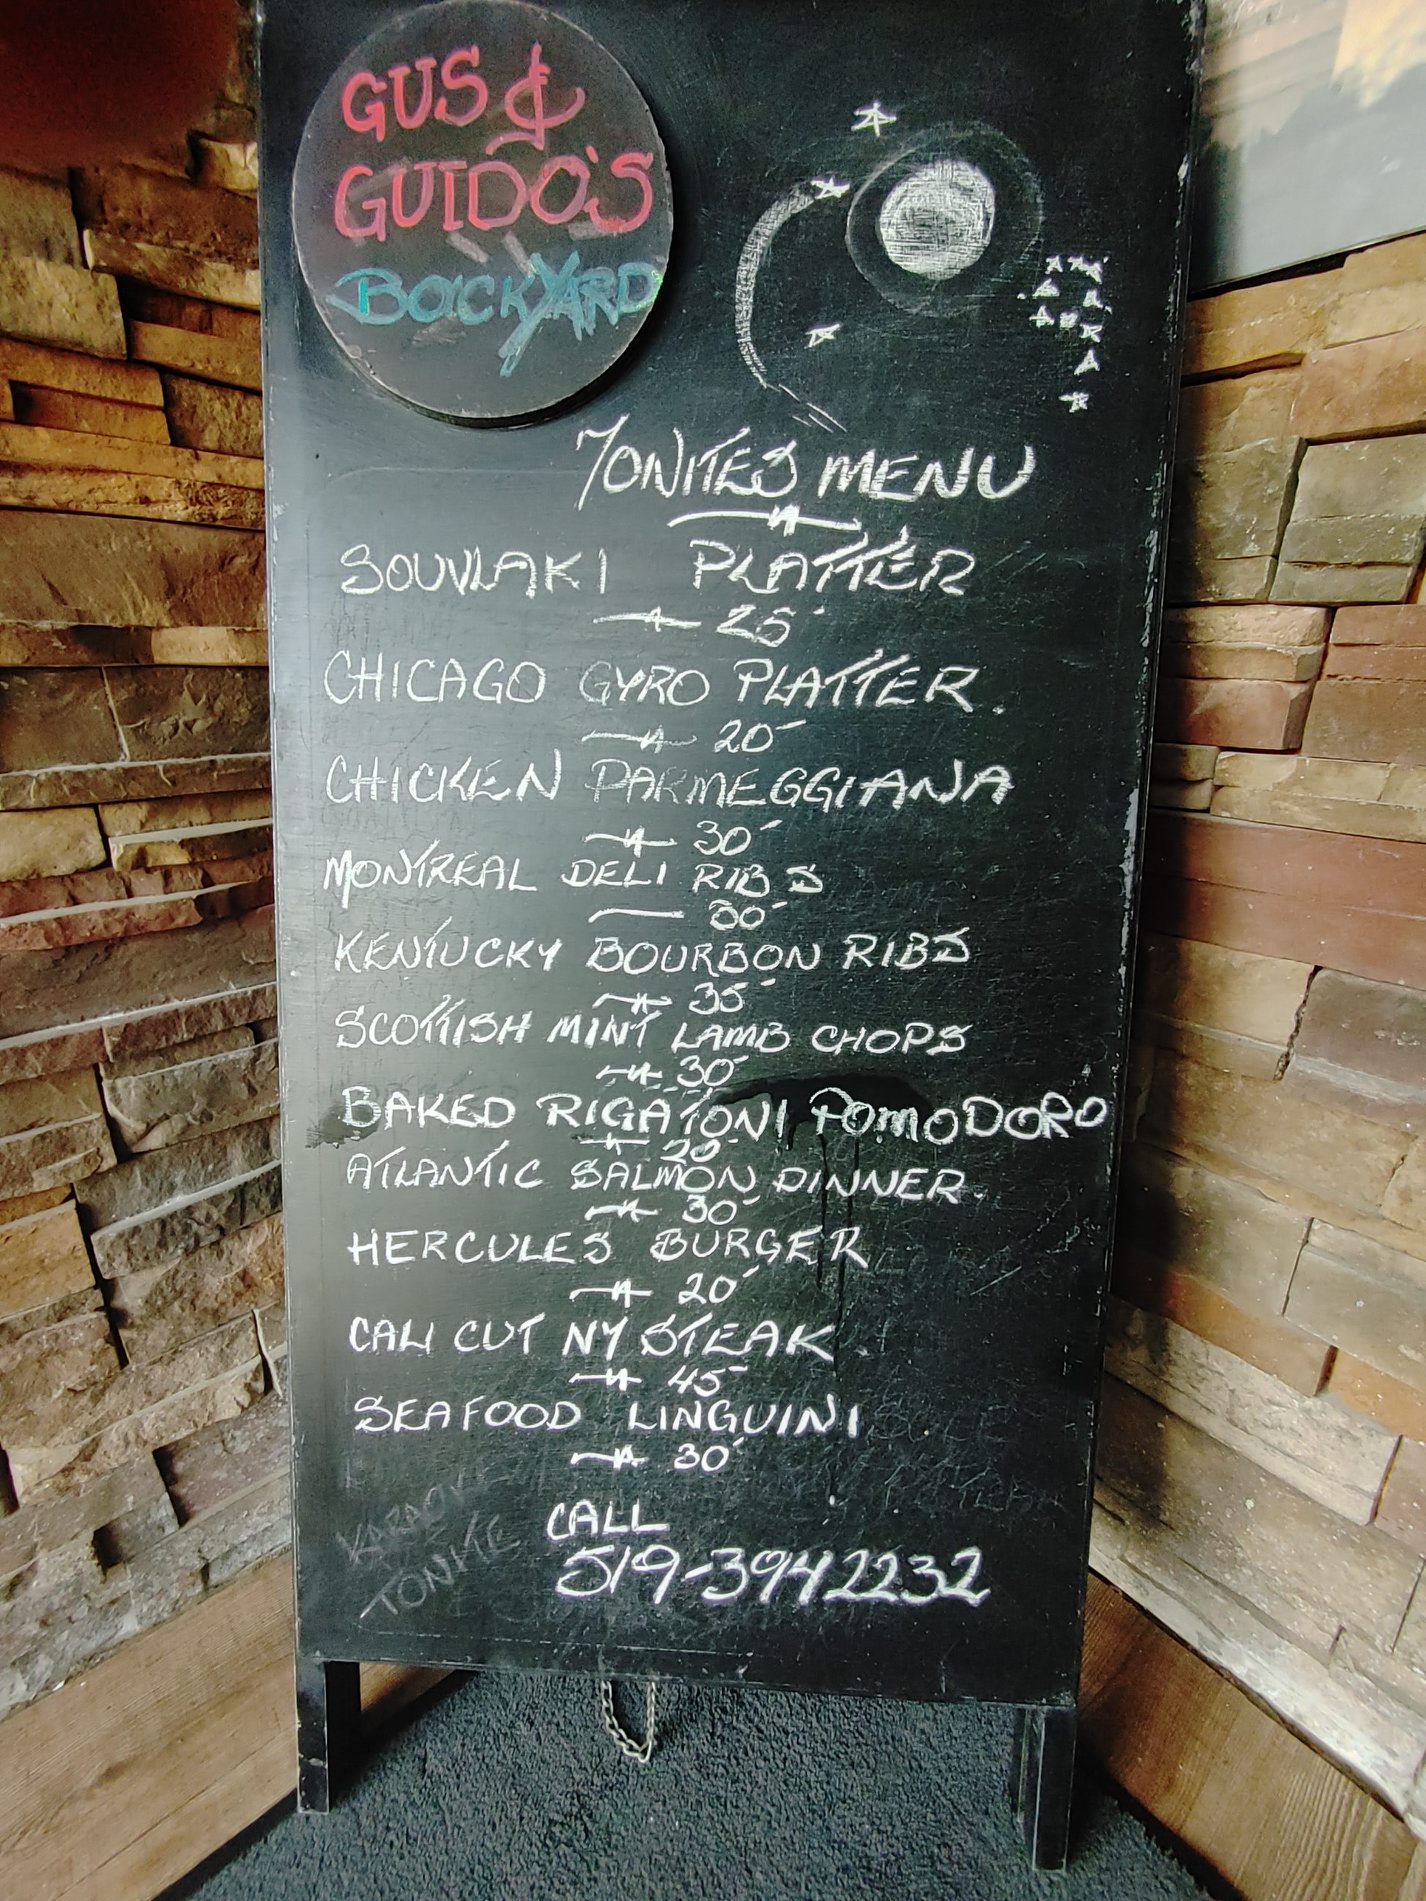 GUS &
GUIDO'S
BACKYARD
TONITES MENU
SOUVLAKI PLATTER
25-
CHICAGO GYRO PLATTER.
20-
CHICKEN PARMEGGIANA
30-
MONTREAL DELI RIBS
30-
KENTUCKY BOURBON RIBS
35-
SCOTTISH MINT LAMB CHOPS
30-
BAKED RIGATONI POMODORO
20-
ATLANTIC SALMON DINNER.
30-
HERCULES BURGER
20-
CALI CUT NY STEAK
45-
SEAFOOD LINGUINI
30-
KARAOKE
TONITE
CALL
519-3942232